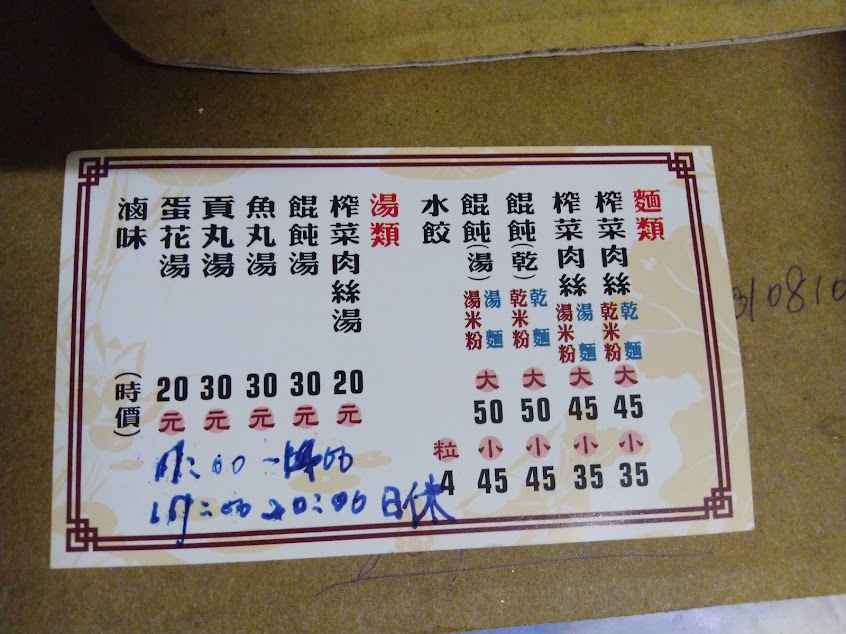 麵類
榨菜肉絲 乾麵 乾米粉 大 45 小 35
榨菜肉絲 湯麵 湯米粉 大 45 小 35
餛飩(乾) 乾麵 乾米粉 大 50 小 45
餛飩(湯) 湯麵 湯米粉 大 50 小 45
水餃 粒 4
湯類
榨菜肉絲湯 20元
餛飩湯 30元
魚丸湯 30元
貢丸湯 30元
蛋花湯 20元
滷味 (時價)
日休